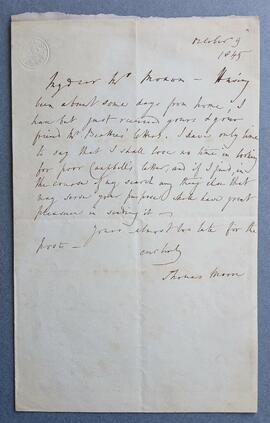 October 9
1845
My dear Mr Moxon - Having
been about some days from home, I
have but just received yours & your
friend Mr letters. I have only time
to say that I shall lose no time in looking
for poor Campbell's letter, and if I find, in
the course of my search any thing else that
may serve your purpose shall have great
pleasure in sending it -
Yours almost too late for the
post -
Thomas Moore